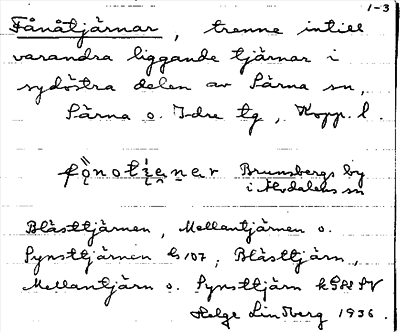 1-3
Fånåtjärnar, trenne intill
varandra liggande tjärnar i
sydöstra delen av Särna sn,
Särna o. Idre tg, Kopp. l.
Brunsbergs by
i Älvdalens sn
Blåsttjärnen, Mellantjärnen o.
Synsttjärnen Es 107; Blåsttjärn,
Mellantjärn o. Synsttjärn kGSK SV
Helge Lindberg 1936.